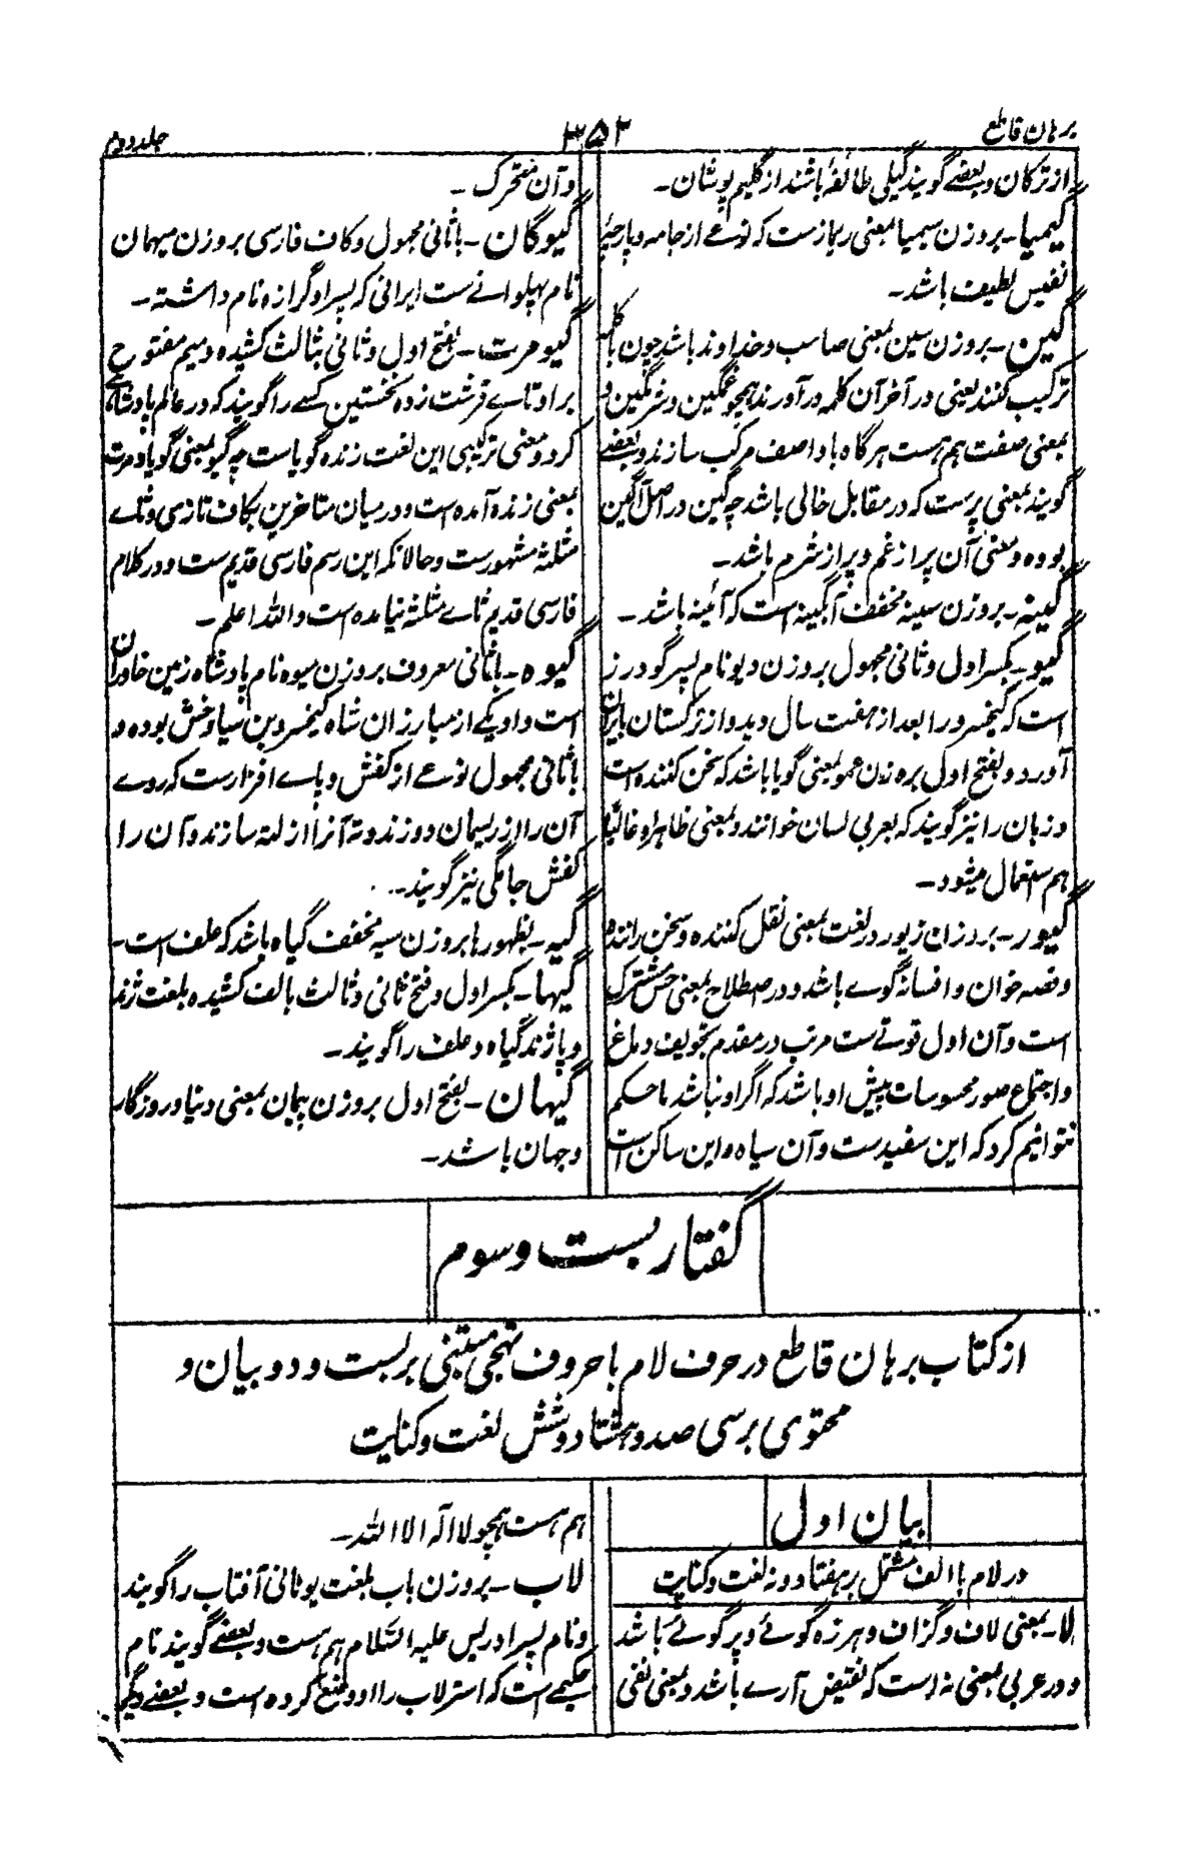 برهان قاطع
۳۵۲
جلد دوم
از ترکان و بعضے گویند گیلی طائفهٔ باشند از گلیم پوشان۔
گیمیا۔ بروزن سیمیا بمعنی ریمازست که نوعے از جامه و پارچهٔ
نفیس لطیف باشد۔
گین۔ بروزن سین بمعنی صاحب و خداوند باشد چون با کلمه
ترکیب کنند یعنی در آخر آن کلمه در آورند همچو غمگین و شرمگین و
بمعنی صفت هم هست هرگاه با واصف مرکب سازند و بعضے
گویند بمعنی پرست که در مقابل خالی باشد چه گین در اصل آگین
بوده و معنی آن پر از غم و پر از شرم باشد۔
گینه۔ بروزن سینه مخفف آبگینه است که آئینه باشد۔
گیو۔ بکسر اول و ثانی مجهول بروزن دیو نام پسر گودرز
است که کیخسرو را بعد از هفت سال دید و از ترکستان بایران
آورد و بفتح اول بر وزن عمو بمعنی گویا باشد که سخن کننده است
و زبان را نیز گویند که بعربی لسان خوانند و بمعنی ظاهرا و غالبا
هم استعمال میشود۔
گیور۔ بروزن زیور در لغت بمعنی نقل کننده و سخن راننده
و قصه خوان و افسانه گوے باشد و در اصطلاح بمعنی حس مشترک
است و آن اول قوتے ست مرتب در مقدم تجویف دماغ
و اجتماع صور محسوسات پیش او باشد که اگر او نباشد ما حکم
نتوانیم کرد که این سفیدست و آن سیاه و این ساکن است
و آن متحرک۔
گیوگان۔ با ثانی مجهول و کاف فارسی بروزن میهمان
نام پهلوانے ست ایرانی که پسر او گرازه نام داشته۔
گیومرت۔ بفتح اول و ثانی بثالث کشیده و میم مفتوح
برا و تاے قرشت زده نخستین کسے را گویند که در عالم پادشاهی
کرد و معنی ترکیبی این لغت زنده گویاست چه گیو بمعنی گویا و مرت
بمعنی زنده آمده است و در میان متاخرین بکاف تازی و ثاے
مثلثه مشهورست و حالانکه این رسم فارسی قدیم ست و در کلام
فارسی قدیم ثاے مثلثه نیامده است والله اعلم۔
گیوه۔ با ثانی معروف بروزن میوه نام پادشاه زمین خاوران
است و او یکے از مبارزان شاه کیخسرو بن سیاوخش بوده و
با ثانی مجهول نوعے از کفش و پاے افزارست که روے
آن را از ریسمان دوزند و ته آنرا از لته سازند و آن را
کفش جامگی نیز گویند۔
گیه۔ بظهور ها بروزن سیه مخفف گیاه باشد که علف است۔
گیها۔ بکسر اول و فتح ثانی و ثالث بالف کشیده بلغت زند
و پازند گیاه و علف را گویند۔
گیهان۔ بفتح اول بروزن پیمان بمعنی دنیا و روزگار
و جهان باشد۔
گفتار بست و سوم
از کتاب برهان قاطع در حرف لام با حروف تهجی مبتنی بر بست و دو بیان و
محتوی بر سی صد و هشتاد و شش لغت و کنایت
بیان اول
در لام با الف مشتمل بر هفتاد و نه لغت و کنایت
لا۔ بمعنی لاف و گزاف و هرزه گوئے و پرگوئے باشد
و در عربی بمعنی نه است که نقیض آرے باشد و بمعنی نفی
هم هست همچو لا اله الا الله۔
لاب۔ بروزن باب بلغت یونانی آفتاب را گویند
و نام پسر ادریس علیه السلام هم هست و بعضے گویند نام
حکیمے است که استرلاب را او وضع کرده است و بعضے دیگر